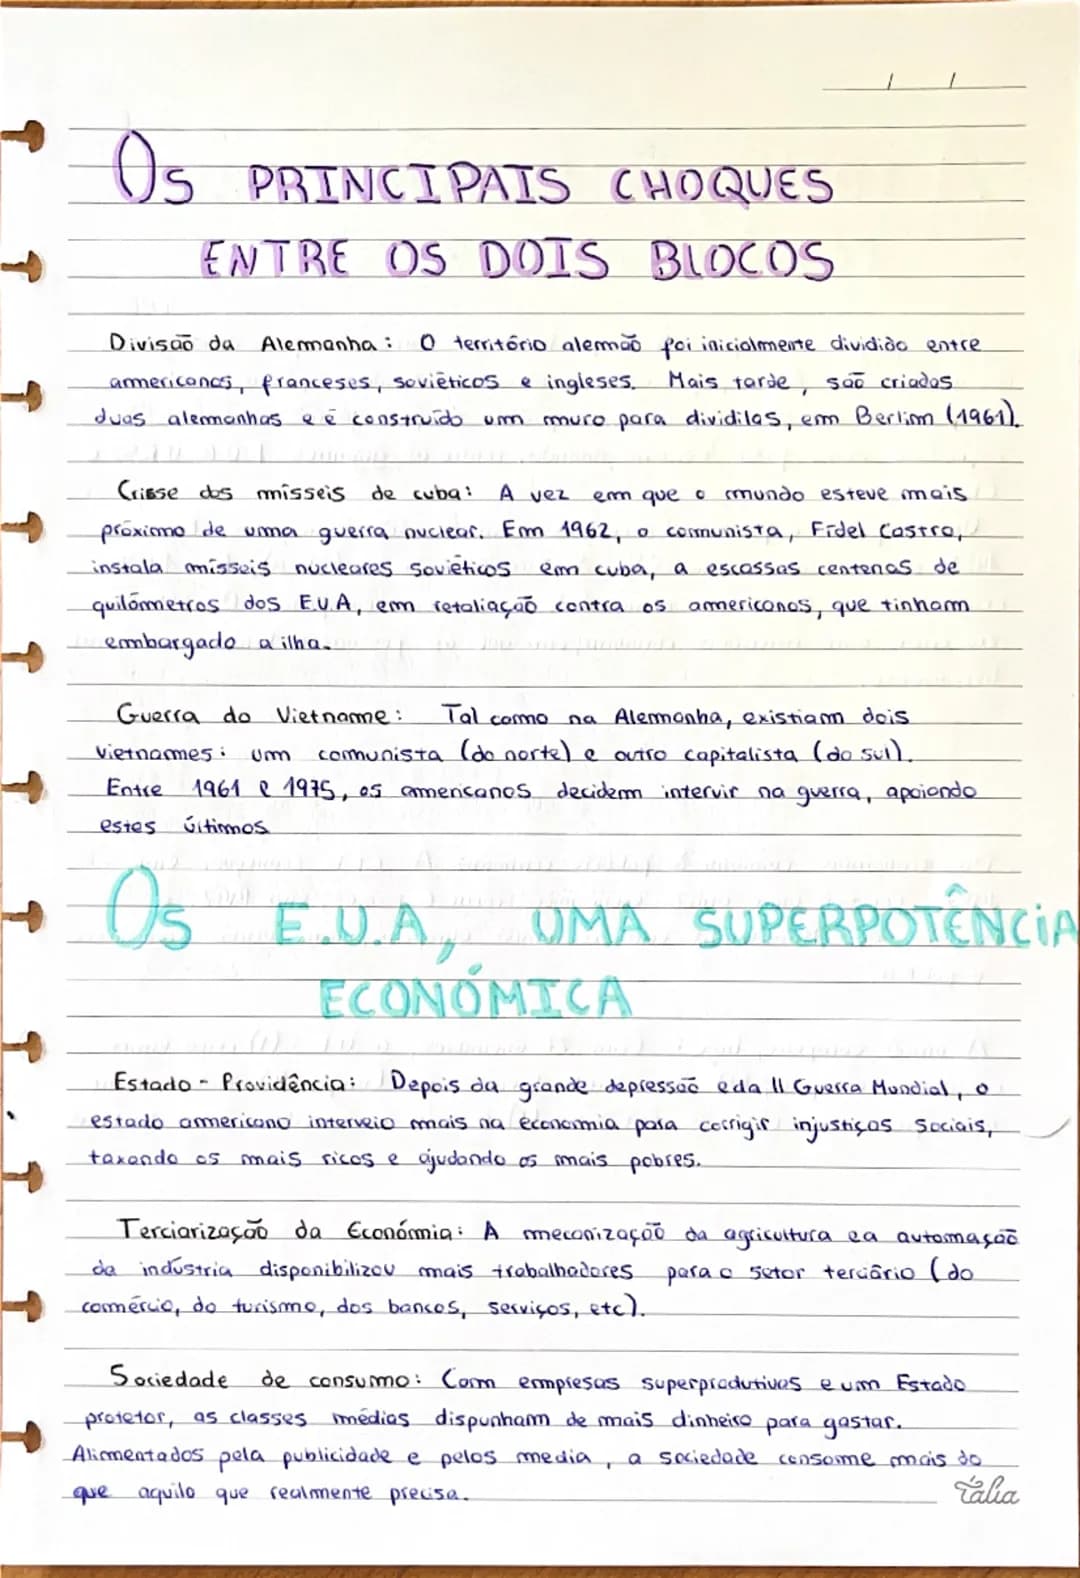 Os PRINCIPAIS CHOQUES
ENTRE OS DOIS BLOCOS
Divisão da Alemanha: O território alemão foi inicialmente dividido entre
americanos, franceses, soviéticos e ingleses. Mais tarde, são criadas
duas alemanhas e é construído um muro para dividilas, em Berlim (1961).
Crisse dos mísseis de cuba: A vez em que o mundo esteve mais
próximo de uma guerra nuclear. Em 1962, o comunista, Fidel Castro,
instala mísseis nucleares soviéticos em cuba, a escassas centenas de
quilómetros dos E.U.A, em retaliação contra os americanos, que tinham
embargado a ilha.
Guerra do Vietname: Tal como na Alemanha, existiam dois
vietnames: um comunista (do norte) e outro capitalista (do sul).
Entre 1961 e 1975, os americanos decidem intervir na guerra, apoiando
estes últimos
Os E.U.A, UMA SUPERPOTÊNCIA
ECONÓMICA
Estado - Providência: Depois da grande depressão e da II Guerra Mundial, o
estado americano interveio mais na economia para corrigir injustiças sociais,
taxando os mais ricos e ajudando os mais pobres.
Terciarização da Económia: A mecanização da agricultura e a automação
da indústria disponibilizou mais trabalhadores para o setor terciário (do
comércio, do turismo, dos bancos, serviços, etc).
Sociedade de consumo: Com empresas superprodutivas e um Estado
protetor, as classes médias dispunham de mais dinheiro para gastar.
Alimentados pela publicidade e pelos media, a sociedade consome mais do
que aquilo que realmente precisa.
Tália